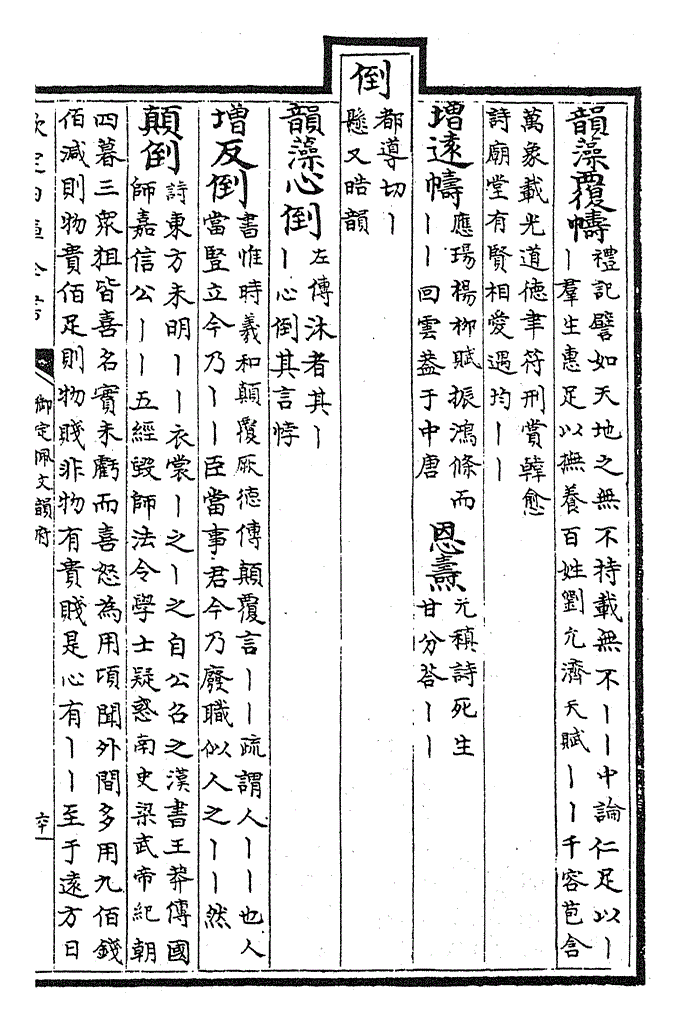 韻藻覆幬
禮記譬如天地之無不持載無不丨丨中論仁足以丨
丨羣生惠足以撫養百姓劉允濟天賦丨丨千容苞含
萬象載光道德聿符刑賞韓愈
詩廟堂有賢相愛遇均丨丨
增遠幬
應瑒楊柳賦振鴻條而
丨丨回雲蓋于中唐
恩燾
元稹詩死生
甘分答丨丨
倒
都導切丨
懸又皓韻
韻藻心倒
左傳沐者其丨
丨心倒其言悖
增反倒
書惟時羲和顛覆厥德傳顛覆言丨丨疏謂人丨丨也人
當豎立今乃丨丨臣當事君今乃廢職似人之丨丨然
顛倒
詩東方未明丨丨衣裳丨之丨之自公召之漢書王莽傳國
師嘉信公丨丨五經毀師法令學士疑惑南史梁武帝紀朝
四暮三衆狙皆喜名實未虧而喜怒為用頃聞外間多用九佰錢
佰減則物貴佰足則物賤非物有貴賤是心有丨丨至于遠方日
欽定四庫全書
御定佩文韻府
六十